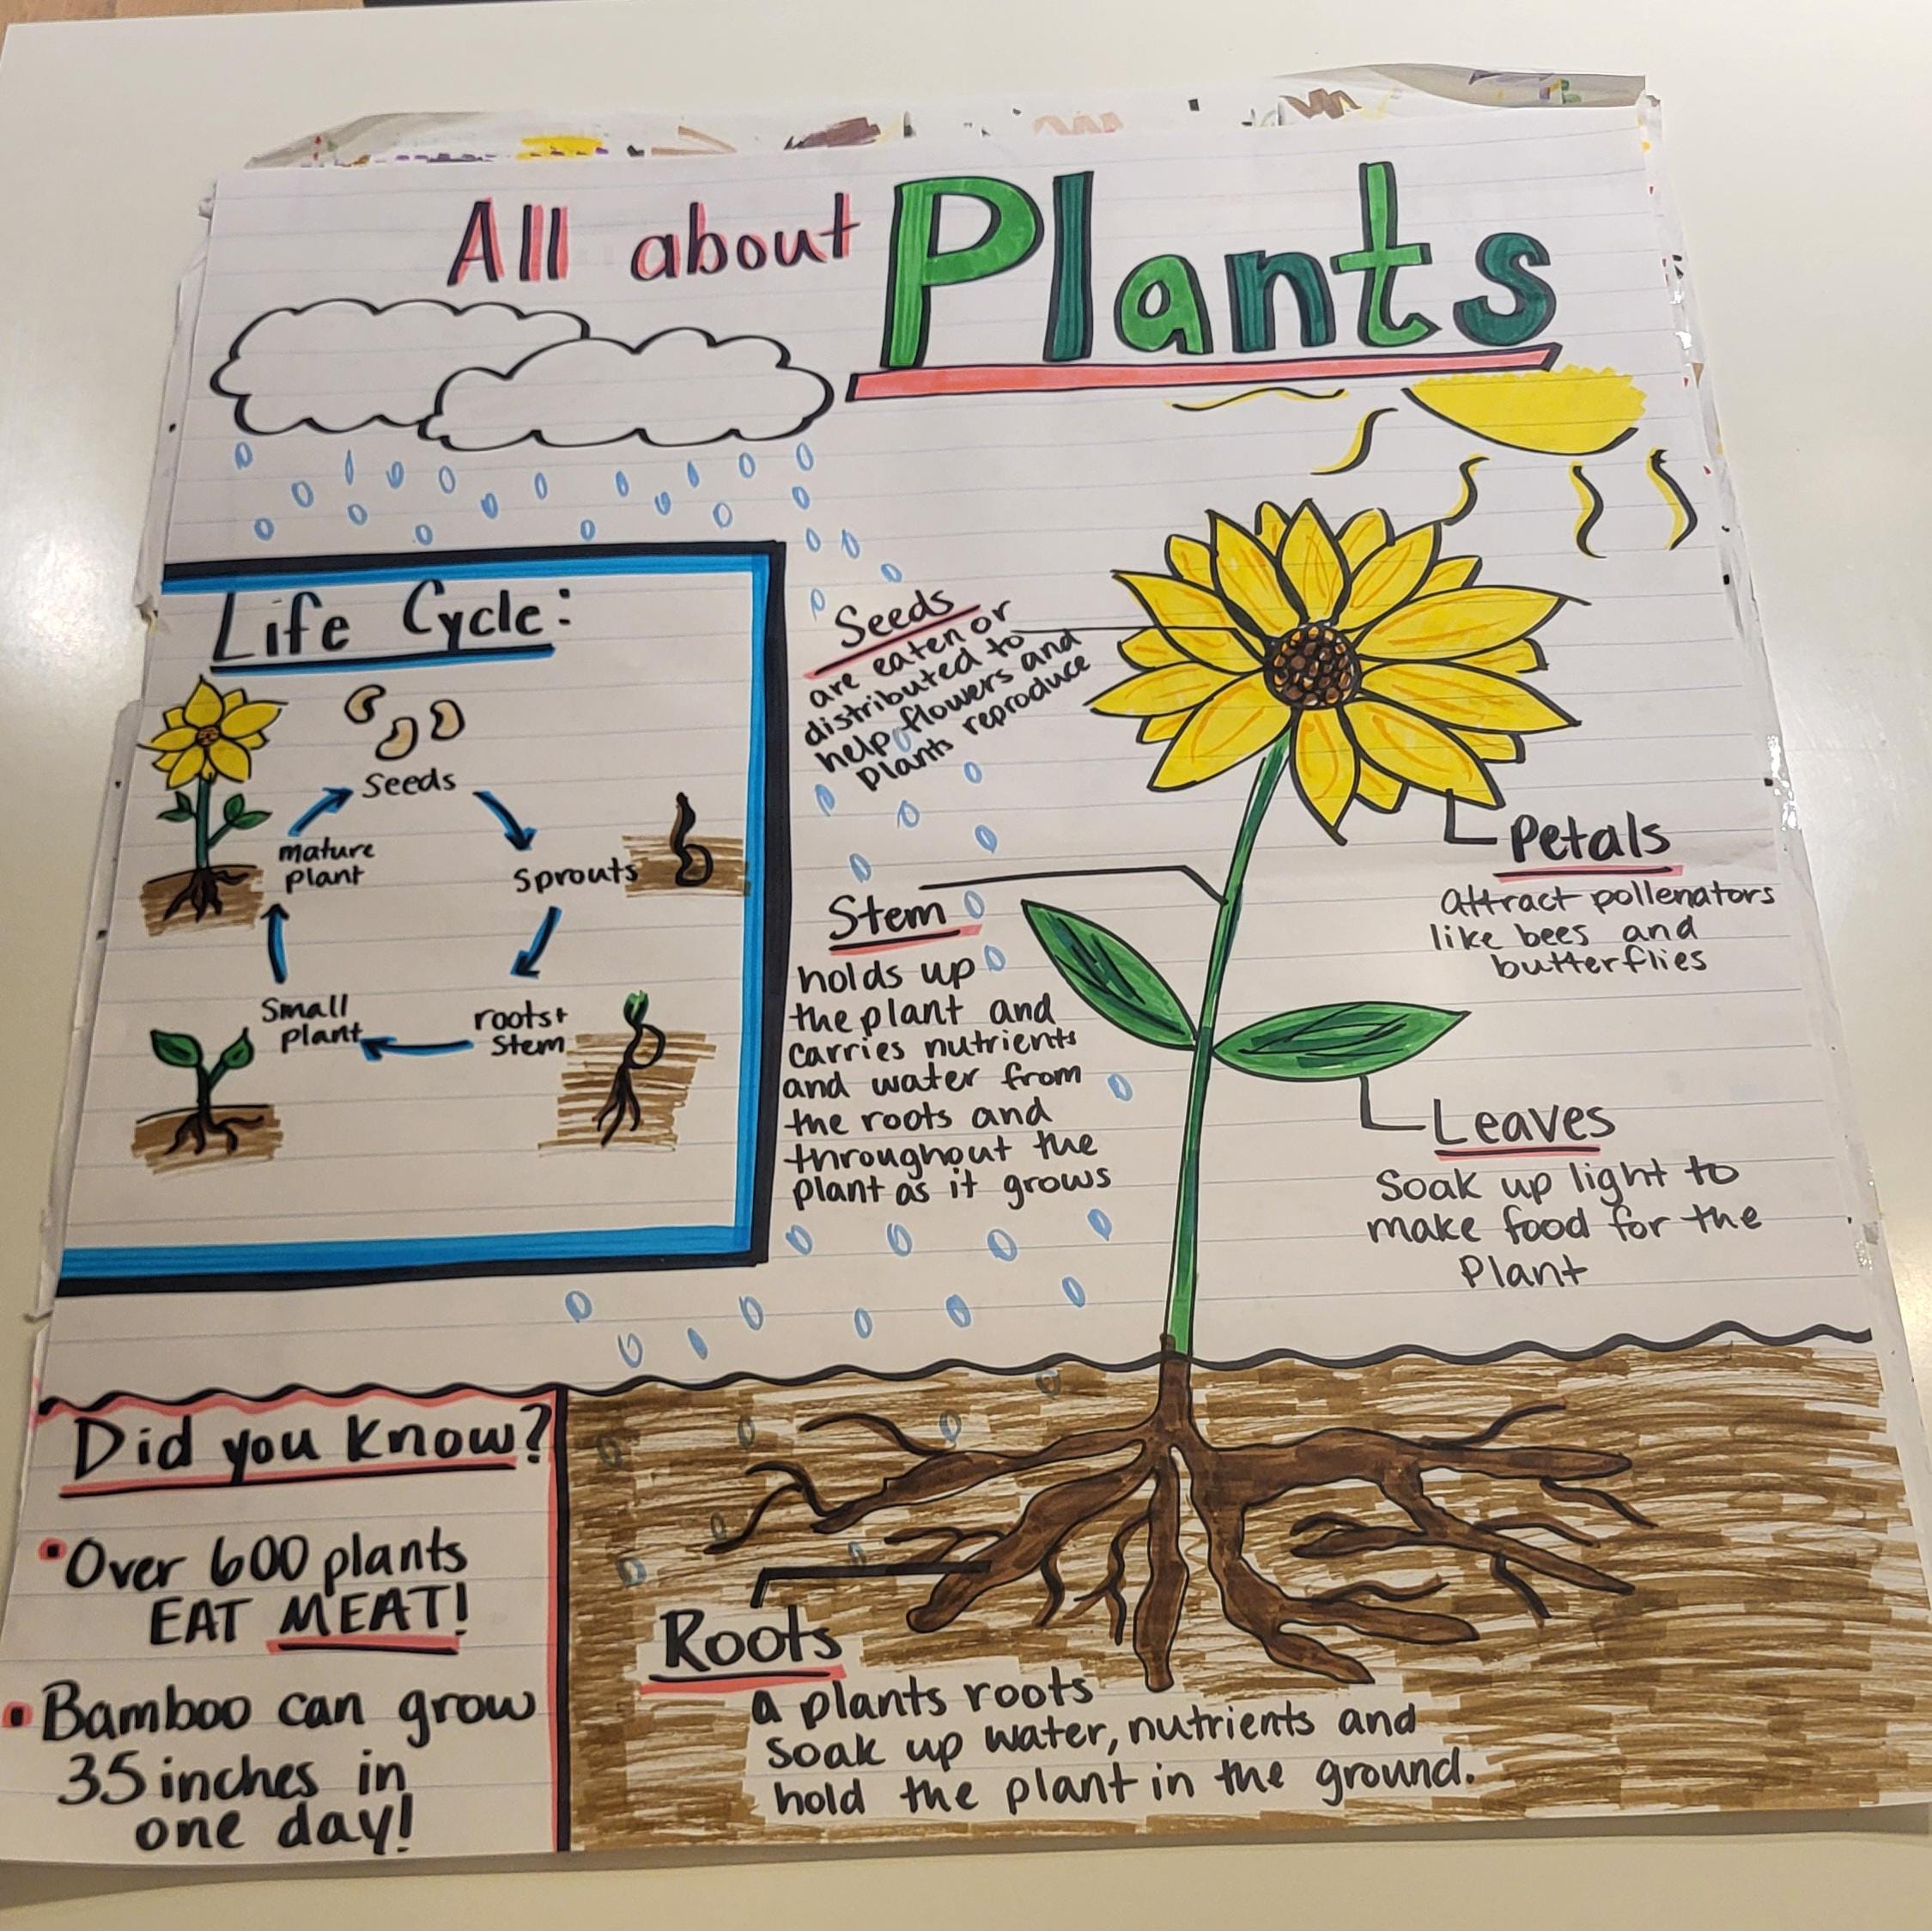 All about Plants
Life Cycle:
Seeds
Sprouts
roots+
Stem
Small
plant
mature
plant
Seeds
are eaten or
distributed to
help flowers and
plants reproduce
Stem
holds up
the plant and
carries nutrients
and water from
the roots and
throughout the
plant as it grows
Petals
attract pollenators
like bees and
butterflies
Leaves
Soak up light to
make food for the
Plant
Did you know?
• Over 600 plants
EAT MEAT!
• Bamboo can grow
35 inches in
one day!
Roots
a plants roots
soak up water, nutrients and
hold the plant in the ground.